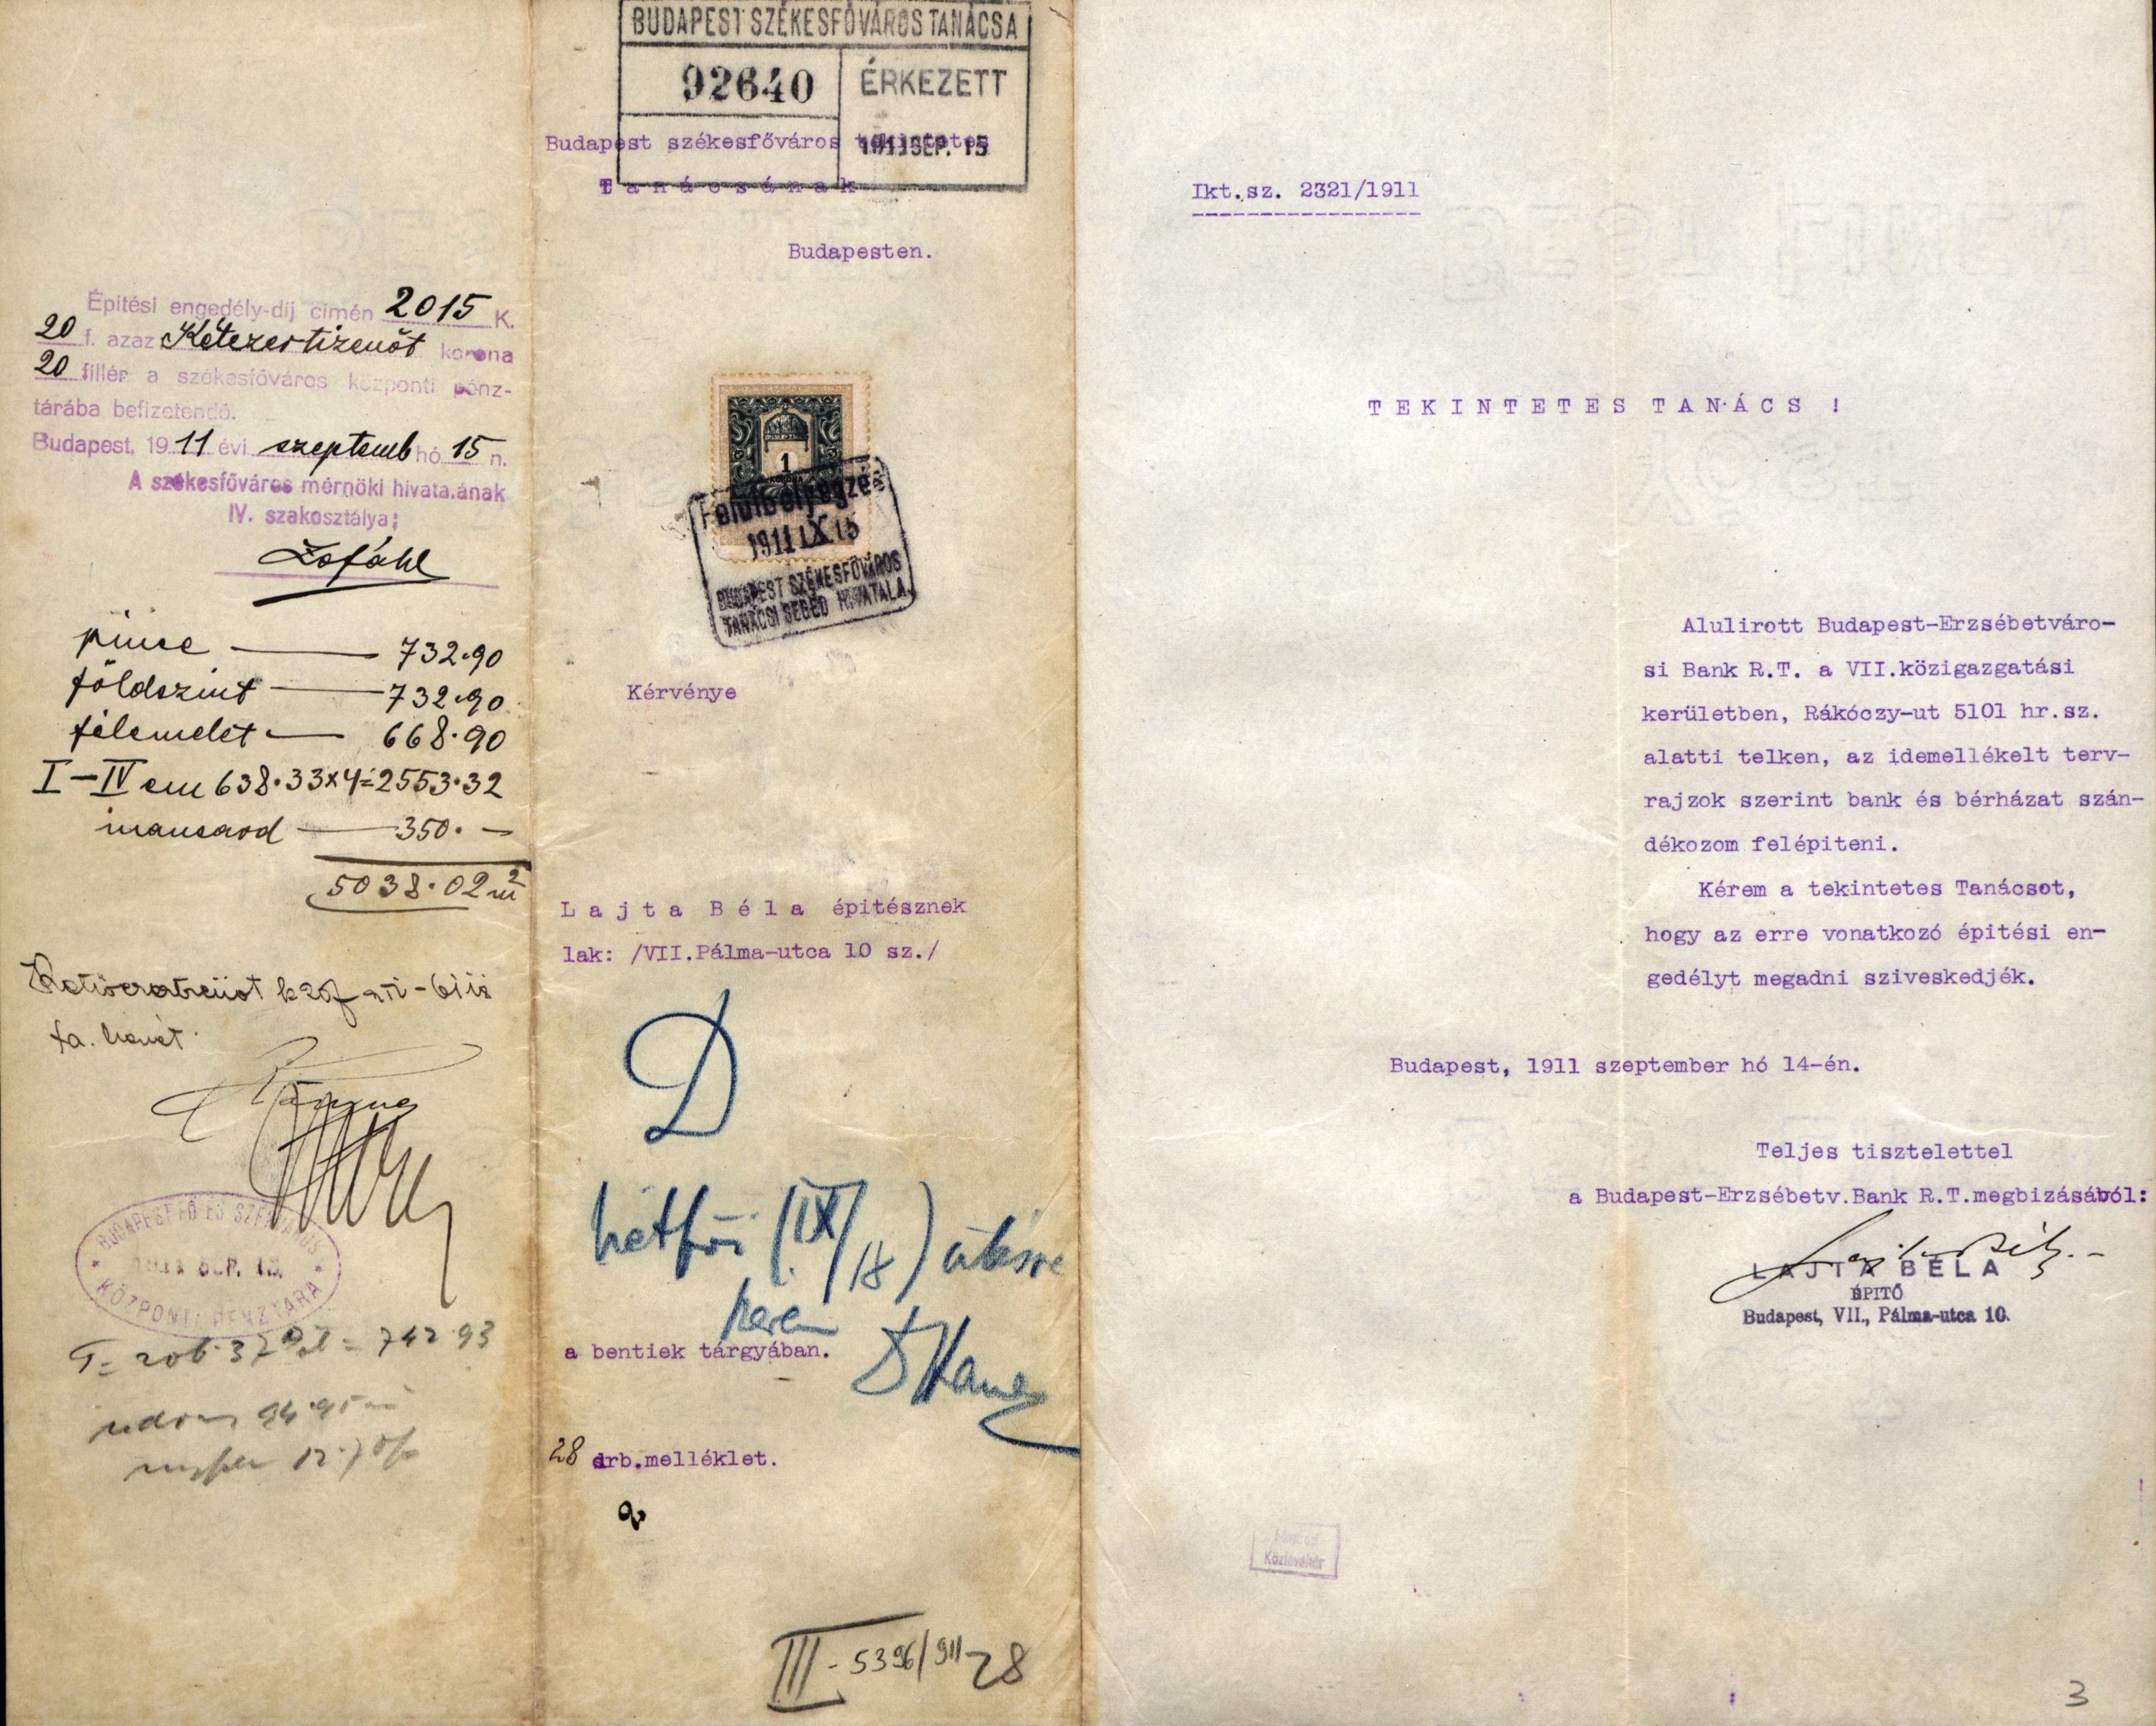 Építési engedély-díj címén 2015 K.
20 f. azaz Kétezertizenöt korona
20 fillér a székesfőváros központi pénz-
tárába befizetendő.
Budapest, 1911 évi szeptemb hó 15 n.
A székesfőváros mérnöki hivatalának
IV. szakosztálya;
pince — 732·90
földszint — 732·90
félemelet — 668·90
I–IV em 638·33x4=2553·32
mansard — 350·—
5038·02 m²
BUDAPEST FŐ ÉS SZÉKVÁROS
1911 SEP. 15.
KÖZPONTI PÉNZTÁRA
BUDAPEST SZÉKESFŐVÁROS TANÁCSA
92640 ÉRKEZETT
1911 SEP. 15
Budapest székesfőváros tekintetes
Tanácsának
Budapesten.
1
Felülbélyegzés
1911 IX 15
BUDAPEST SZÉKESFŐVÁROS
TANÁCSI SEGÉD HIVATALA
Kérvénye
Lajta Béla épitésznek
lak: /VII.Pálma-utca 10 sz./
D
hétfői (IX/18) ülésre
kérem
a bentiek tárgyában.
28 drb.melléklet.
III-5396/911 28
Ikt.sz. 2321/1911
TEKINTETES TANÁCS !
Alulirott Budapest-Erzsébetváro-
si Bank R.T. a VII.közigazgatási
kerületben, Rákóczy-ut 5101 hr.sz.
alatti telken, az idemellékelt terv-
rajzok szerint bank és bérházat szán-
dékozom felépiteni.
Kérem a tekintetes Tanácsot,
hogy az erre vonatkozó épitési en-
gedélyt megadni sziveskedjék.
Budapest, 1911 szeptember hó 14-én.
Teljes tisztelettel
a Budapest-Erzsébetv.Bank R.T.megbizásából:
Lajta Béla
LAJTA BÉLA
ÉPITŐ
Budapest, VII., Pálma-utca 10.
3